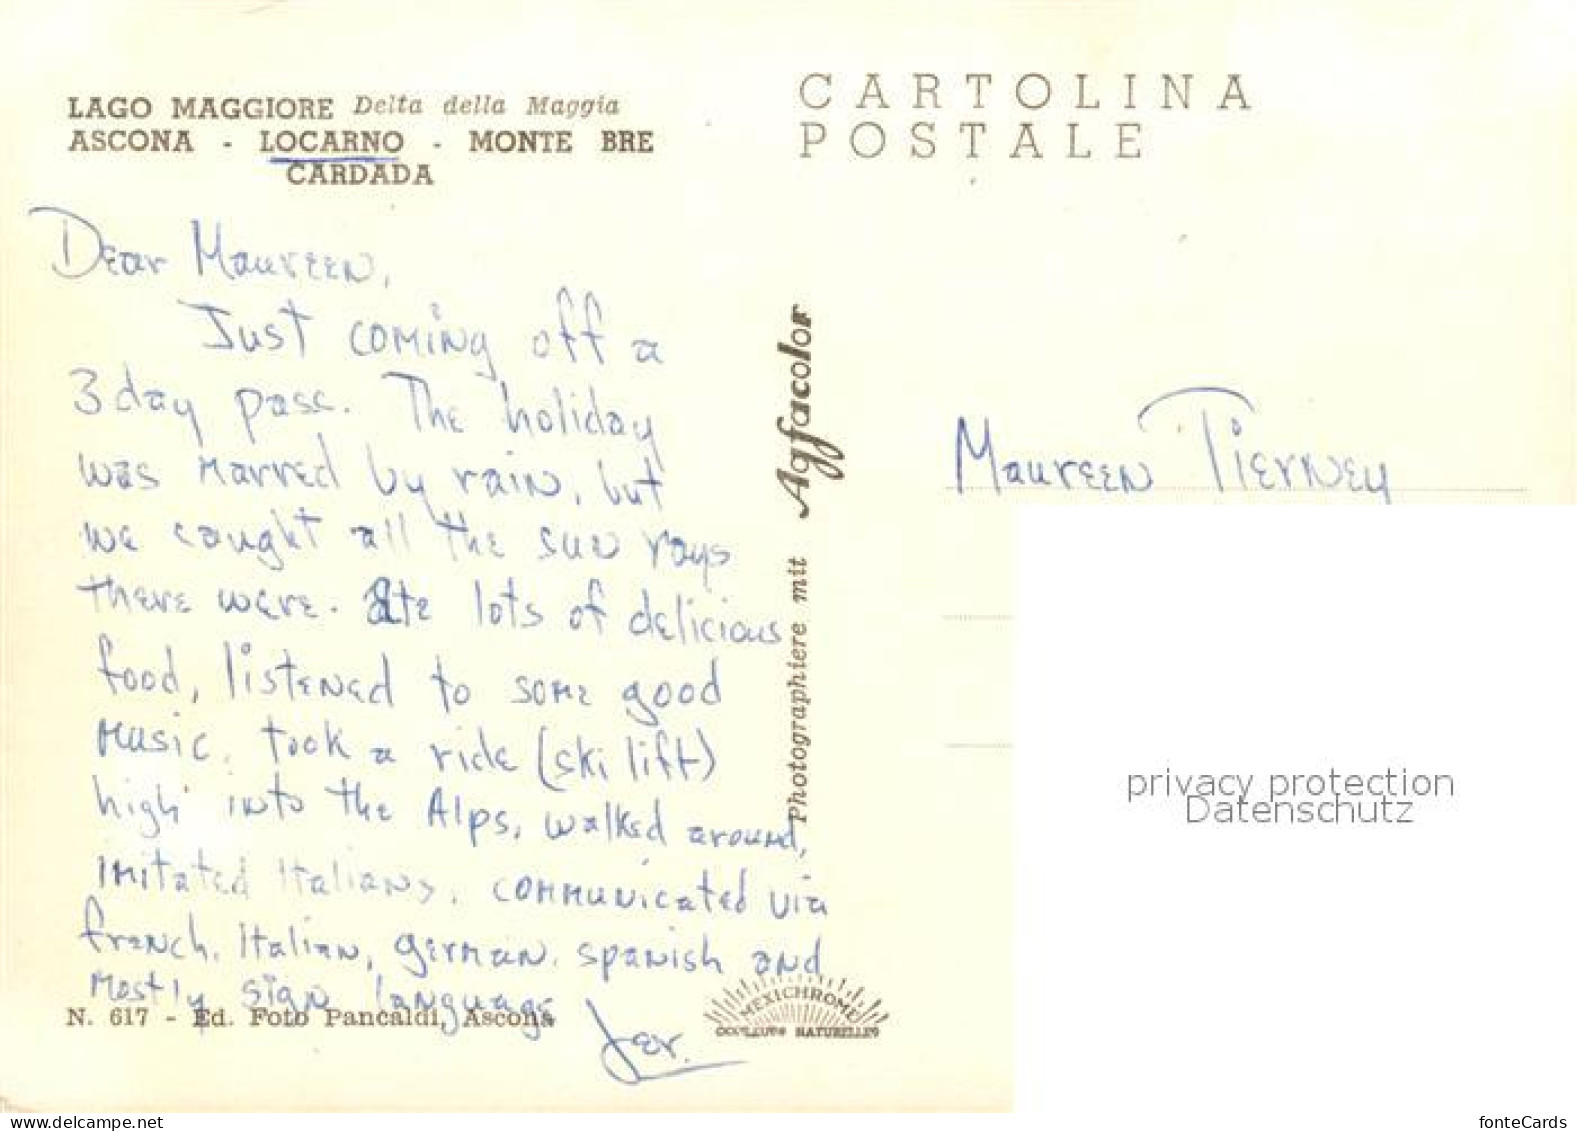 LAGO MAGGIORE Delta della Maggia
ASCONA - LOCARNO - MONTE BRE
CARDADA
CARTOLINA
POSTALE
Dear Maureen,
Just coming off a
3 day pass. The holiday
was marred by rain, but
we caught all the sun rays
there were. Ate lots of delicious
food, listened to some good
music, took a ride (ski lift)
high into the Alps, walked around,
imitated Italians, communicated via
french, Italian, german, spanish and
mostly sign language
Jer.
N. 617 - Ed. Foto Pancaldi, Ascona
Photographiere mit Agfacolor
MEXICHROME
COULEURS NATURELLES
Maureen Tierney
privacy protection
Datenschutz
www.delcampe.net
fonteCards